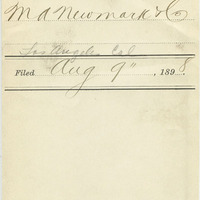 M A Newmark & Co
Los Angeles Cal
Filed Aug 9" , 1898